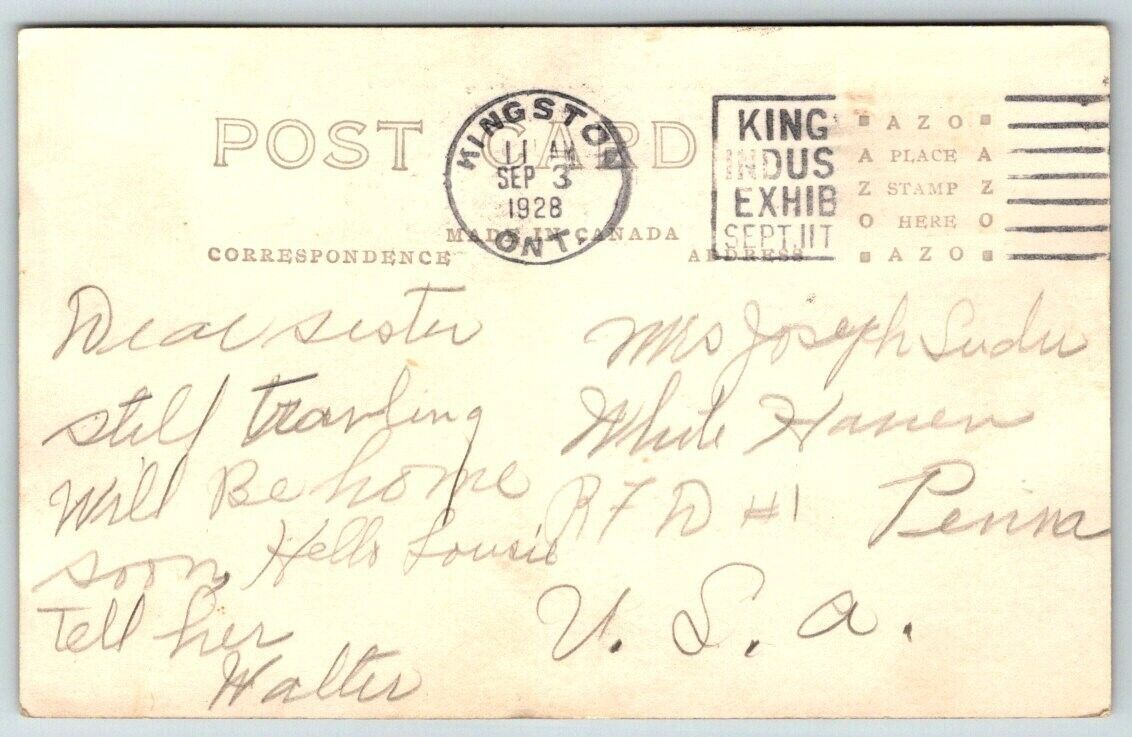 POST CARD
KINGSTON
11 AM
SEP 3
1928
ONT.
KING
INDUS
EXHIB
SEPT.11T
AZO
PLACE
STAMP
HERE
AZO
MADE IN CANADA
CORRESPONDENCE
ADDRESS
Dear sister
still
Will Be home
soon, Hello Lousie
Tell her
Walter
Mrs Joseph
White Haven
R F D #1 Penna
U. S. a.